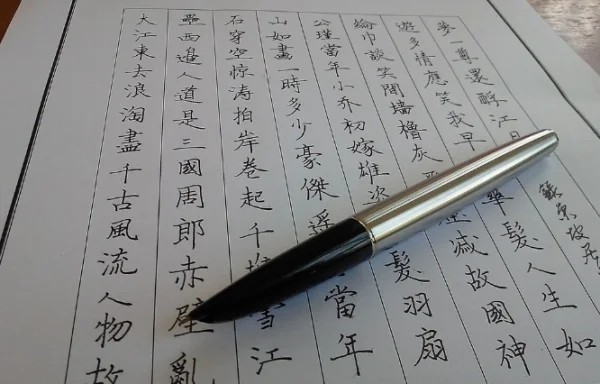 大江東去浪淘盡千古風流人物故
壘西邉人道是三國周郎赤壁亂
石穿空惊涛拍岸卷起千雪江
山如畫一時多少豪傑遥當年
公瑾當年小乔初嫁雄髮羽扇
綸巾談笑間墻櫓灰減故國神
遊多情應笑我早華髮人生如
夢一尊還酹江